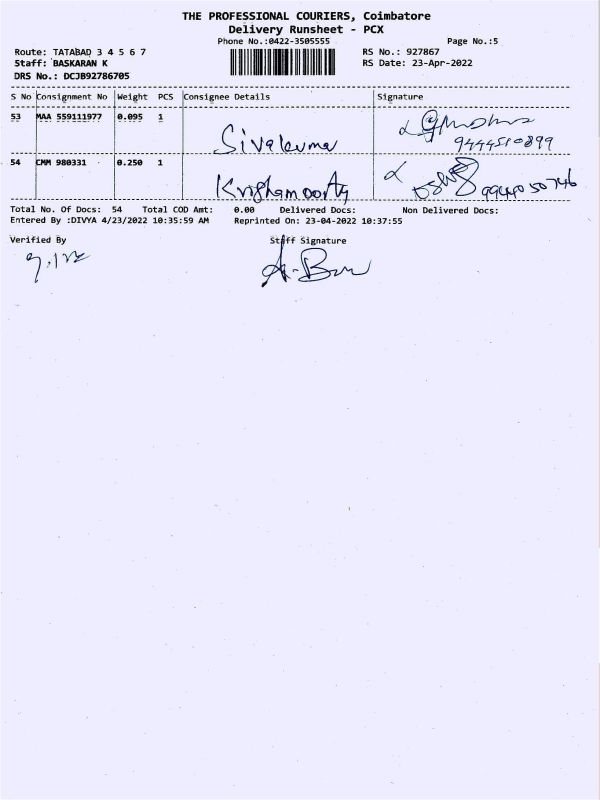 THE PROFESSIONAL COURIERS, Coimbatore
Delivery Runsheet - PCX
Phone No.:0422-3505555 Page No.:5
Route: TATABAD 3 4 5 6 7 RS No.: 927867
Staff: BASKARAN K RS Date: 23-Apr-2022
DRS No.: DCJB92786705
S No Consignment No Weight PCS Consignee Details Signature
53 MAA 559111977 0.095 1
Sivakuma 9444510899
54 CMM 980331 0.250 1
Krishamoorty 9944050746
Total No. Of Docs: 54 Total COD Amt: 0.00 Delivered Docs: Non Delivered Docs:
Entered By :DIVYA 4/23/2022 10:35:59 AM Reprinted On: 23-04-2022 10:37:55
Verified By Staff Signature